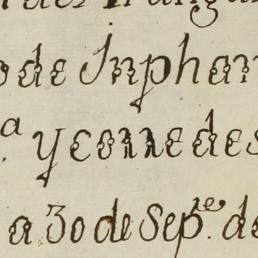 o de Jnphan
a y corre des
a 30 de Sep.re de